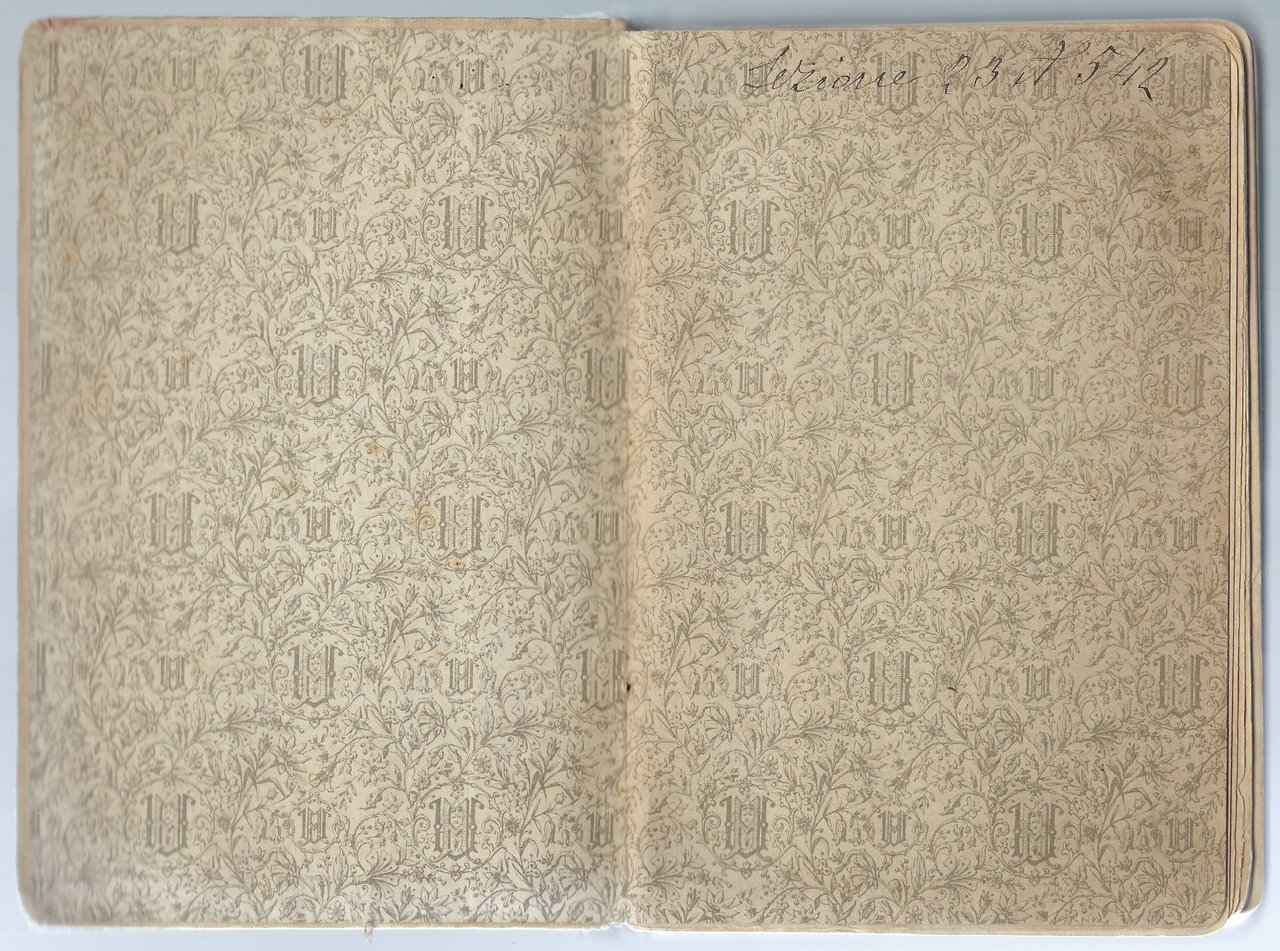 Sezione 23 N 542